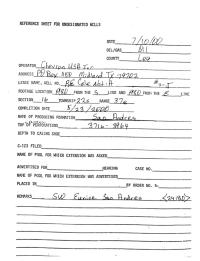 REFERENCE SHEET FOR UNDESIGNATED WELLS
DATE 7/10/00
DEL/GAS
COUNTY Lea
OPERATOR Chevron USA Inc
ADDRESS PO Box 1150 Midland TX 79702
LEASE NAME, WELL NO.
FOOTAGE LOCATION, 1980 FROM THE S LINE AND 1980 FROM THE E LINE
SECTION 16 TOWNSHIP 22S RANGE 37E
COMPLETION DATE 5/23/2000
NAME OF PRODUCING FORMATION San Andres
TOP OF PERFORATIONS 3716-3964
DEPTH TO CASING SHOE
C-123 FILED
NAME OF POOL FOR WHICH EXTENSION WAS ASKED
ADVERTISED FOR HEARING CASE NO.
NAME OF POOL FOR WHICH EXTENSION WAS ADVERTISED
PLACED IN BY ORDER NO. R-
REMARKS SWD Eunice San Andres <24180>